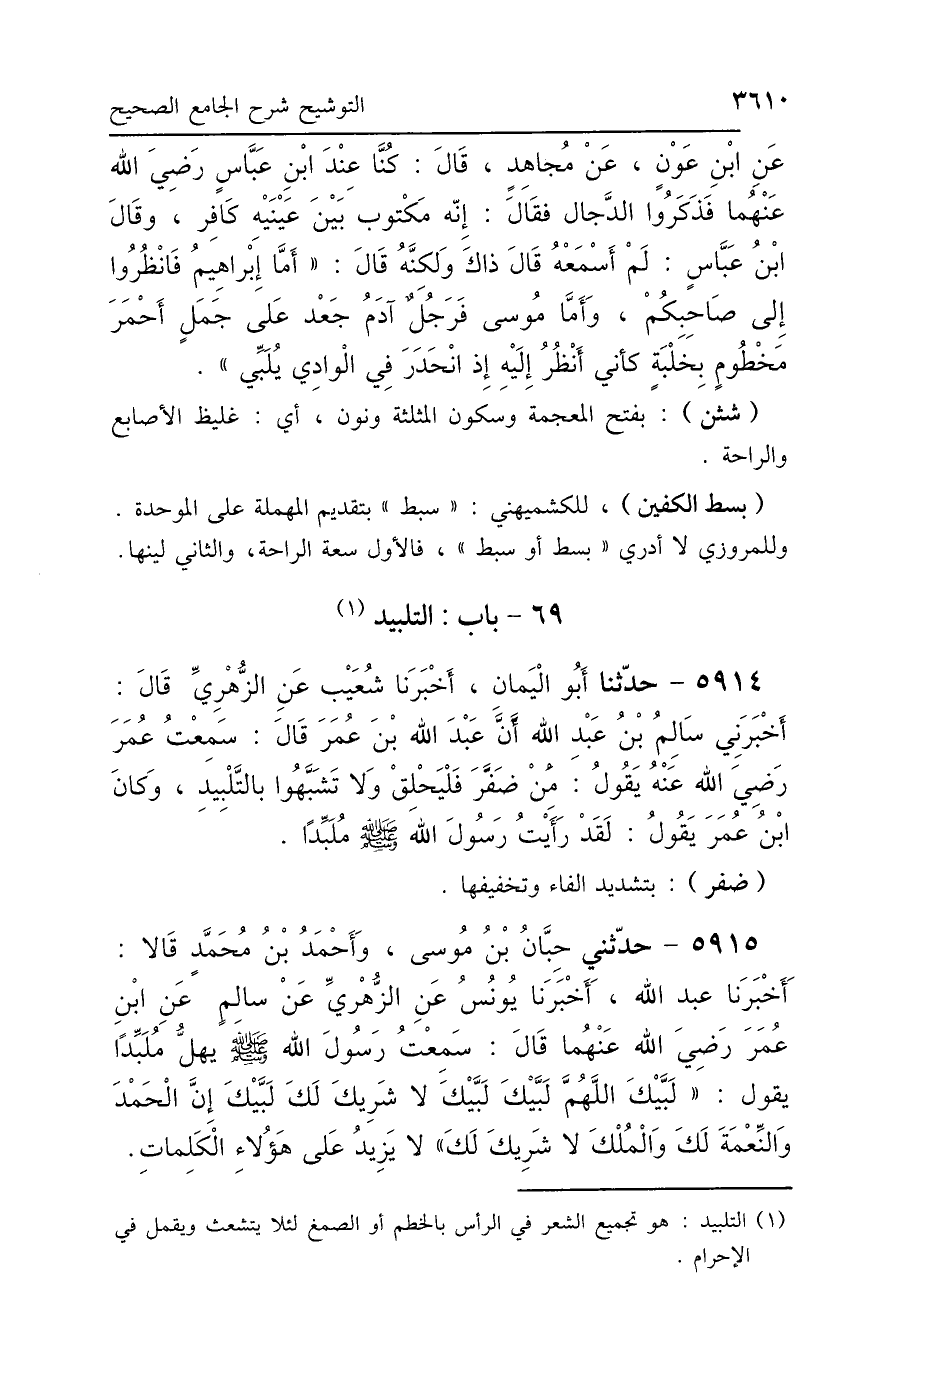 ٣٦١٠ التوشيح شرح الجامع الصحيح
عَنِ ابْنِ عَوْنٍ ، عَنْ مُجاهِدٍ ، قَالَ : كُنَّا عِنْدَ ابْنِ عَبَّاسٍ رَضِيَ الله
عَنْهُما فَذَكَرُوا الدَّجال فقَالَ : إنّه مَكْتوب بَيْنَ عَيْنَيْهِ كَافِر ، وقَالَ
ابْنُ عبَّاسٍ : لَمْ أسْمَعْهُ قَالَ ذاكَ ولَكِنَّهُ قَالَ : « أمَّا إبْراهِيمُ فَانْظُرُوا
إلى صَاحِبِكُمْ ، وأَمَّا مُوسى فَرَجُلٌ آدَمُ جَعْد عَلى جَمَلٍ أَحْمَرَ
مَخْطُومٍ بِخُلْبَةٍ كأني أَنْظُرُ إلَيْهِ إذ انْحَدَرَ فِي الْوادِي يُلَبِّي » .
( شثن ) : بفتح المعجمة وسكون المثلثة ونون ، أي : غليظ الأصابع
والراحة .
( بسط الكفين ) ، للكشميهني : « سبط » بتقديم المهملة على الموحدة .
وللمروزي لا أدري « بسط أو سبط » ، فالأول سعة الراحة، والثاني لينها.
٦٩ - باب : التلبيد (١)
٥٩١٤ - حدّثنا أَبُو الْيَمانِ ، أَخْبَرَنَا شُعَيْب عَنِ الزُّهْرِيِّ قَالَ :
أَخْبَرَنِي سَالِمُ بْنُ عَبْدِ الله أَنَّ عَبْدَ الله بْنَ عُمَرَ قَالَ : سَمِعْتُ عُمَرَ
رَضِيَ الله عَنْهُ يَقُولُ : مَنْ ضَفَّرَ فَلْيَحْلِقْ وَلَا تَشَبَّهُوا بالتَّلْبِيدِ ، وَكانَ
ابْنُ عُمَرَ يَقُولُ : لَقَدْ رَأَيْتُ رَسُولَ الله ﷺ مُلَبِّدًا .
( ضفر ) : بتشديد الفاء وتخفيفها .
٥٩١٥ - حدّثني حِبَّانُ بْنُ مُوسى ، وأَحْمَدُ بْنُ مُحَمَّدٍ قَالا :
أَخْبَرَنَا عبد الله ، أَخْبَرَنَا يُونُسُ عَنِ الزُّهْرِيِّ عَنْ سالِمٍ عَنِ ابْنِ
عُمَرَ رَضِيَ الله عَنْهُما قَالَ : سَمِعْتُ رَسُولَ الله ﷺ يهلُّ مُلَبِّدًا
يقول : « لَبَّيْكَ اللَّهُمَّ لَبَّيْكَ لَبَّيْكَ لا شَرِيكَ لَكَ لَبَّيْكَ إنَّ الْحَمْدَ
وَالنِّعْمَةَ لَكَ وَالْمُلْكَ لا شَرِيكَ لَكَ» لا يَزِيدُ عَلى هَؤُلاءِ الْكَلِماتِ.
(١) التلبيد : هو تجميع الشعر في الرأس بالخطم أو الصمغ لئلا يتشعث ويقمل في
الإحرام .